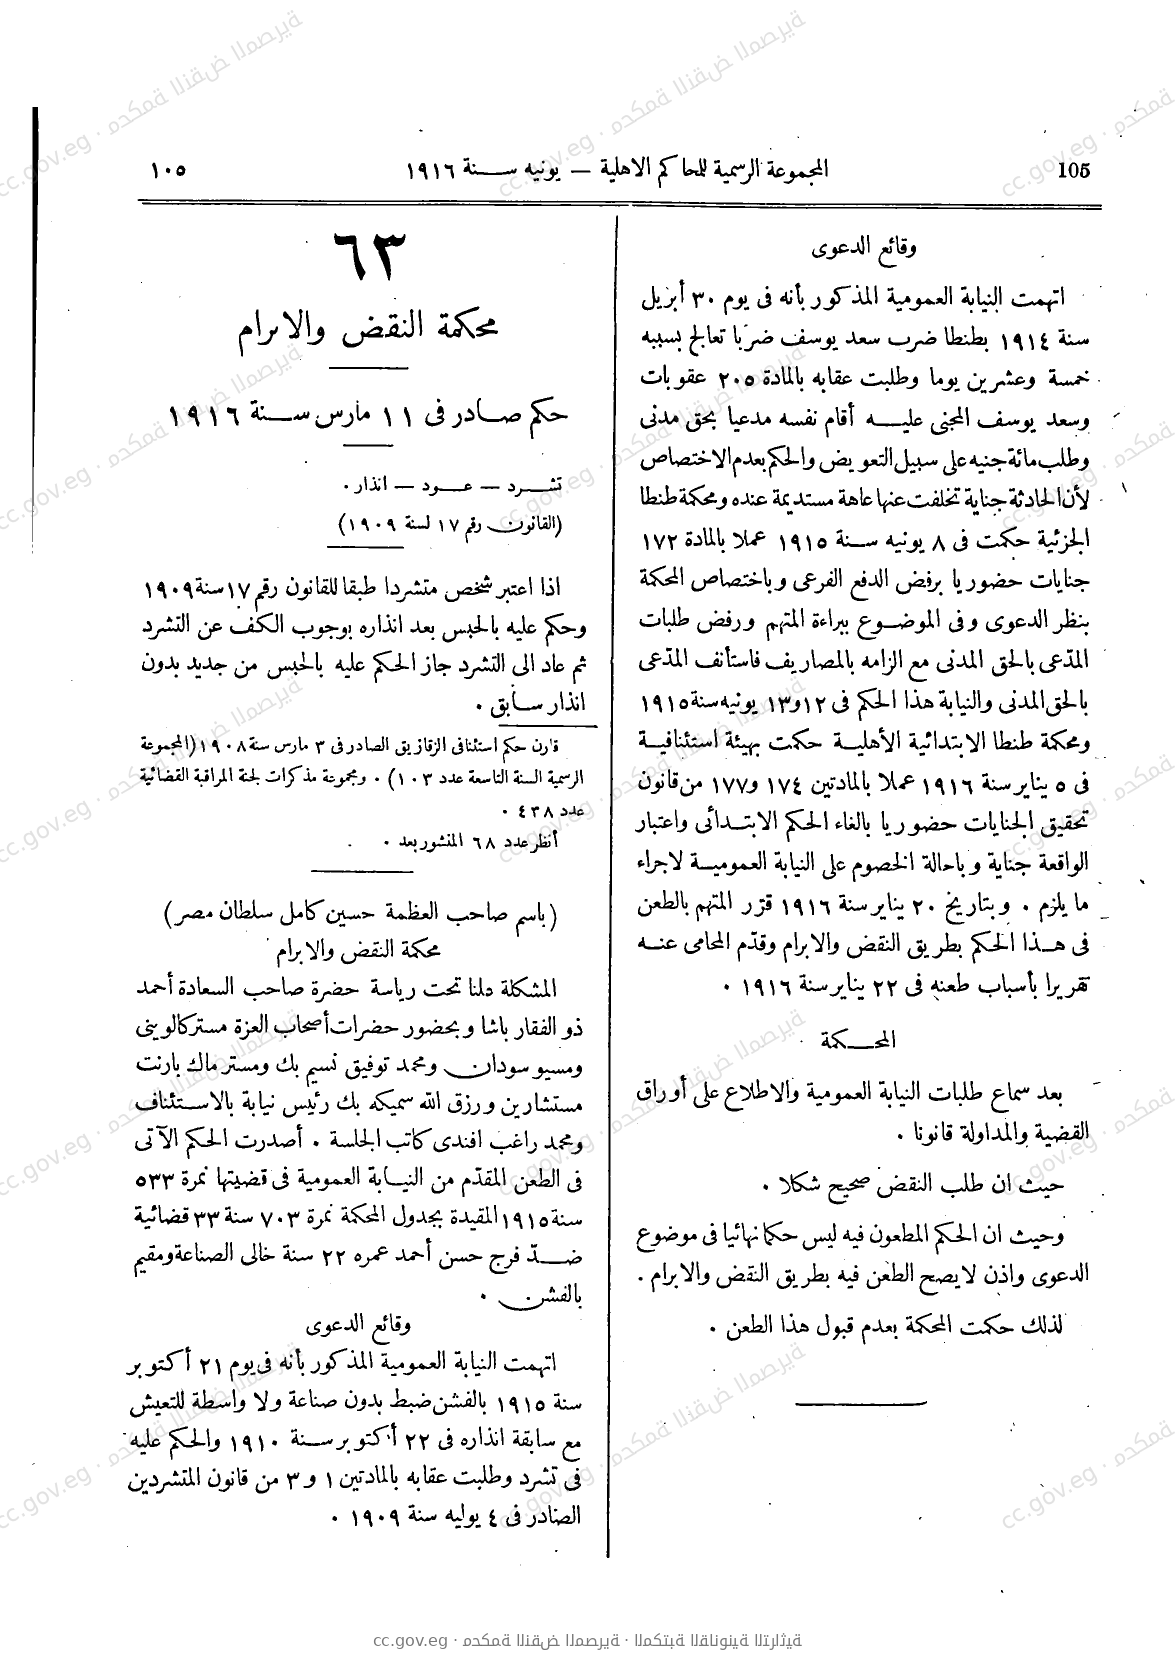 105
المجموعة الرسمية للمحاكم الاهلية — يونيه سنة ١٩١٦
١٠٥
وقائع الدعوى
اتهمت النيابة العمومية المذكور بأنه فى يوم ٣٠ أبريل
سنة ١٩١٤ بطنطا ضرب سعد يوسف ضربا تعالج بسببه
خمسة وعشرين يوما وطلبت عقابه بالمادة ٢٠٥ عقوبات
وسعد يوسف المجنى عليه أقام نفسه مدعيا بحق مدنى
وطلب مائة جنيه على سبيل التعويض والحكم بعدم الاختصاص
لأن الحادثة جناية تخلفت عنها عاهة مستديمة عنده ومحكمة طنطا
الجزئية حكمت فى ٨ يونيه سنة ١٩١٥ عملا بالمادة ١٧٢
جنايات حضوريا برفض الدفع الفرعى وباختصاص المحكمة
بنظر الدعوى وفى الموضوع ببراءة المتهم ورفض طلبات
المدّعى بالحق المدنى مع الزامه بالمصاريف فاستأنف المدّعى
بالحق المدنى والنيابة هذا الحكم فى ١٢ و١٣ يونيه سنة ١٩١٥
ومحكمة طنطا الابتدائية الأهلية حكمت بهيئة استئنافية
فى ٥ يناير سنة ١٩١٦ عملا بالمادتين ١٧٤ و١٧٧ من قانون
تحقيق الجنايات حضوريا بالغاء الحكم الابتدائى واعتبار
الواقعة جناية وباحالة الخصوم على النيابة العمومية لاجراء
ما يلزم . وبتاريخ ٢٠ يناير سنة ١٩١٦ قرّر المتهم بالطعن
فى هذا الحكم بطريق النقض والابرام وقدّم المحامى عنه
تقريرا بأسباب طعنه فى ٢٢ يناير سنة ١٩١٦ .
المحكمة
بعد سماع طلبات النيابة العمومية والاطلاع على أوراق
القضية والمداولة قانونا .
حيث ان طلب النقض صحيح شكلا .
وحيث ان الحكم المطعون فيه ليس حكما نهائيا فى موضوع
الدعوى واذن لا يصح الطعن فيه بطريق النقض والابرام .
لذلك حكمت المحكمة بعدم قبول هذا الطعن .
٦٣
محكمة النقض والابرام
حكم صادر فى ١١ مارس سنة ١٩١٦
تشرد — عود — انذار .
(القانون رقم ١٧ لسنة ١٩٠٩)
اذا اعتبر شخص متشردا طبقا للقانون رقم ١٧ سنة ١٩٠٩
وحكم عليه بالحبس بعد انذاره بوجوب الكف عن التشرد
ثم عاد الى التشرد جاز الحكم عليه بالحبس من جديد بدون
انذار سابق .
قارن حكم استئنافى الزقازيق الصادر فى ٣ مارس سنة ١٩٠٨ (المجموعة
الرسمية السنة التاسعة عدد ١٠٣) . ومجموعة مذكرات لجنة المراقبة القضائية
عدد ٤٣٨ .
أنظر عدد ٦٨ المنشور بعد .
(باسم صاحب العظمة حسين كامل سلطان مصر)
محكمة النقض والابرام
المشكلة علنا تحت رياسة حضرة صاحب السعادة أحمد
ذو الفقار باشا وبحضور حضرات أصحاب العزة مستر كالوينى
ومسيو سودان ومحمد توفيق نسيم بك ومستر ماك بارنت
مستشارين ورزق الله سميكه بك رئيس نيابة بالاستئناف
ومحمد راغب افندى كاتب الجلسة . أصدرت الحكم الآتى
فى الطعن المقدّم من النيابة العمومية فى قضيتها نمرة ٥٣٣
سنة ١٩١٥ المقيدة بجدول المحكمة نمرة ٧٠٣ سنة ٣٣ قضائية
ضدّ فرج حسن أحمد عمره ٢٢ سنة خالى الصناعة ومقيم
بالفشن .
وقائع الدعوى
اتهمت النيابة العمومية المذكور بأنه فى يوم ٢١ أكتوبر
سنة ١٩١٥ بالفشن ضبط بدون صناعة ولا واسطة للتعيش
مع سابقة انذاره فى ٢٢ أكتوبر سنة ١٩١٠ والحكم عليه
فى تشرد وطلبت عقابه بالمادتين ١ و ٣ من قانون المتشردين
الصادر فى ٤ يوليه سنة ١٩٠٩ .
cc.gov.eg · محكمة النقض المصرية · المكتبة القانونية التراثية